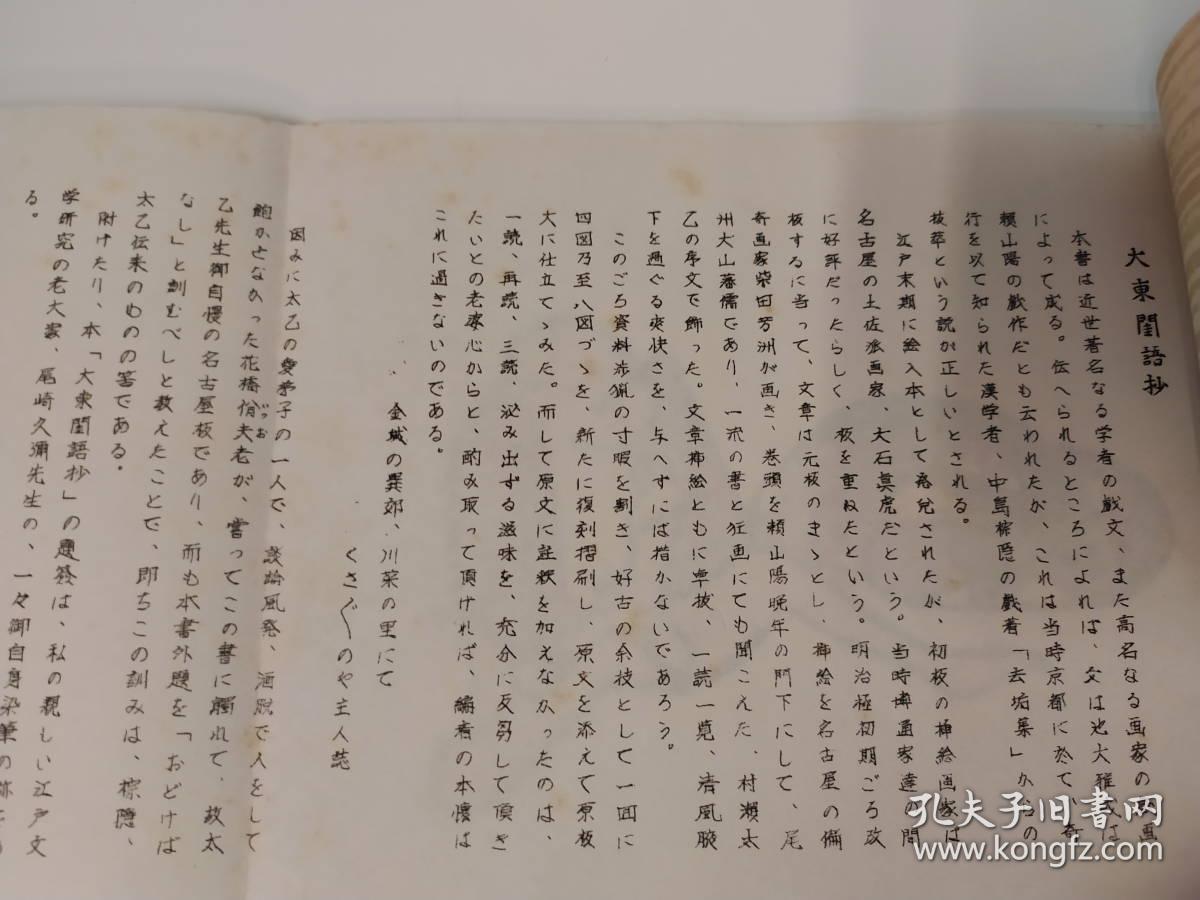 大東閨語抄
本書は近世著名なる学者の戯文、また高名なる画家の戯画
によって成る。伝へられるところによれば、文は池大雅或は
頼山陽の戯作だとも云われたが、これは当時京都に於て、奇
行を以て知られた漢学者、中島棕隠の戯著「去垢集」からの
抜萃という説が正しいとされる。
江戸末期に絵入本として売出されたが、初板の挿絵画家は
名古屋の土佐派画家、大石真虎だという。当時博通家達の間
に好評だったらしく、板を重ねたという。明治極初期ごろ改
板するに当って、文章は元板のまゝとし、挿絵を名古屋の備
奇画家柴田芳洲が画き、巻頭を頼山陽晩年の門下にして、尾
州犬山藩儒であり、一流の書と狂画にても聞こえた、村瀬太
乙の序文で飾った。文章挿絵ともに卓抜、一読一覧、清風腋
下を過ぐる爽快さを、与へずには措かないであろう。
このごろ資料渉猟の寸暇を割き、好古の余技として一回に
四図乃至八図づゝを、新たに復刻摺刷し、原文を添えて原板
大に仕立てゝみた。而して原文に註釈を加えなかったのは、
一読、再読、三読、泌み出ずる滋味を、充分に反芻して頂き
たいとの老婆心からと、酌み取って頂ければ、編者の本懐は
これに過ぎないのである。
金城の巽郊、川菜の里にて
くさ〴〵のや主人誌
因みに太乙の愛弟子の一人で、談論風発、洒脱で人をして
飽かせなかった花橋佾夫老が、嘗ってこの書に触れて、故太
乙先生御自慢の名古屋板であり、而も本書外題を「おどけば
なし」と訓むべしと教えたことで、即ちこの訓みは、棕隠、
太乙伝来のものの筈である。
附けたり、本「大東閨語抄」の題簽は、私の親しい江戸文
学研究の老大家、尾崎久彌先生の、一々御自身染筆の
る。
孔夫子旧書网
www.kongfz.com